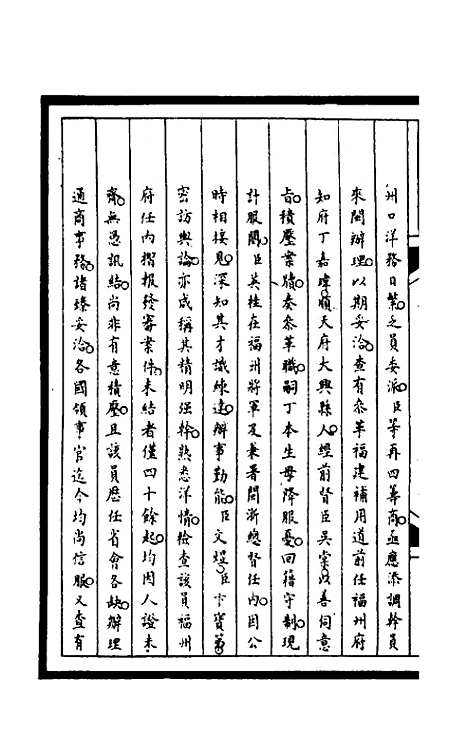 州口洋務日繁乏員委派臣等再四籌商亟應添調幹員
來閩辦理以期妥洽查有叅革福建補用道前任福州府
知府丁嘉瑋順天府大興縣人經前督臣吳棠以善伺意
旨積壓案牘奏叅革職嗣丁本生母降服憂回籍守制現
計服闋臣英桂在福州將軍及兼署閩浙總督任內因公
時相接見深知其才識練達辦事勤能臣文煜臣卞寶第
密訪輿論亦咸稱其精明强幹熟悉洋情檢查該員福州
府任內摺報發審案件未結者僅四十餘起均因人證未
齊無憑訊結尚非有意積壓且該員歷任省會各缺辦理
通商事務諸臻妥洽各國領事官迄今均尚信服又查有